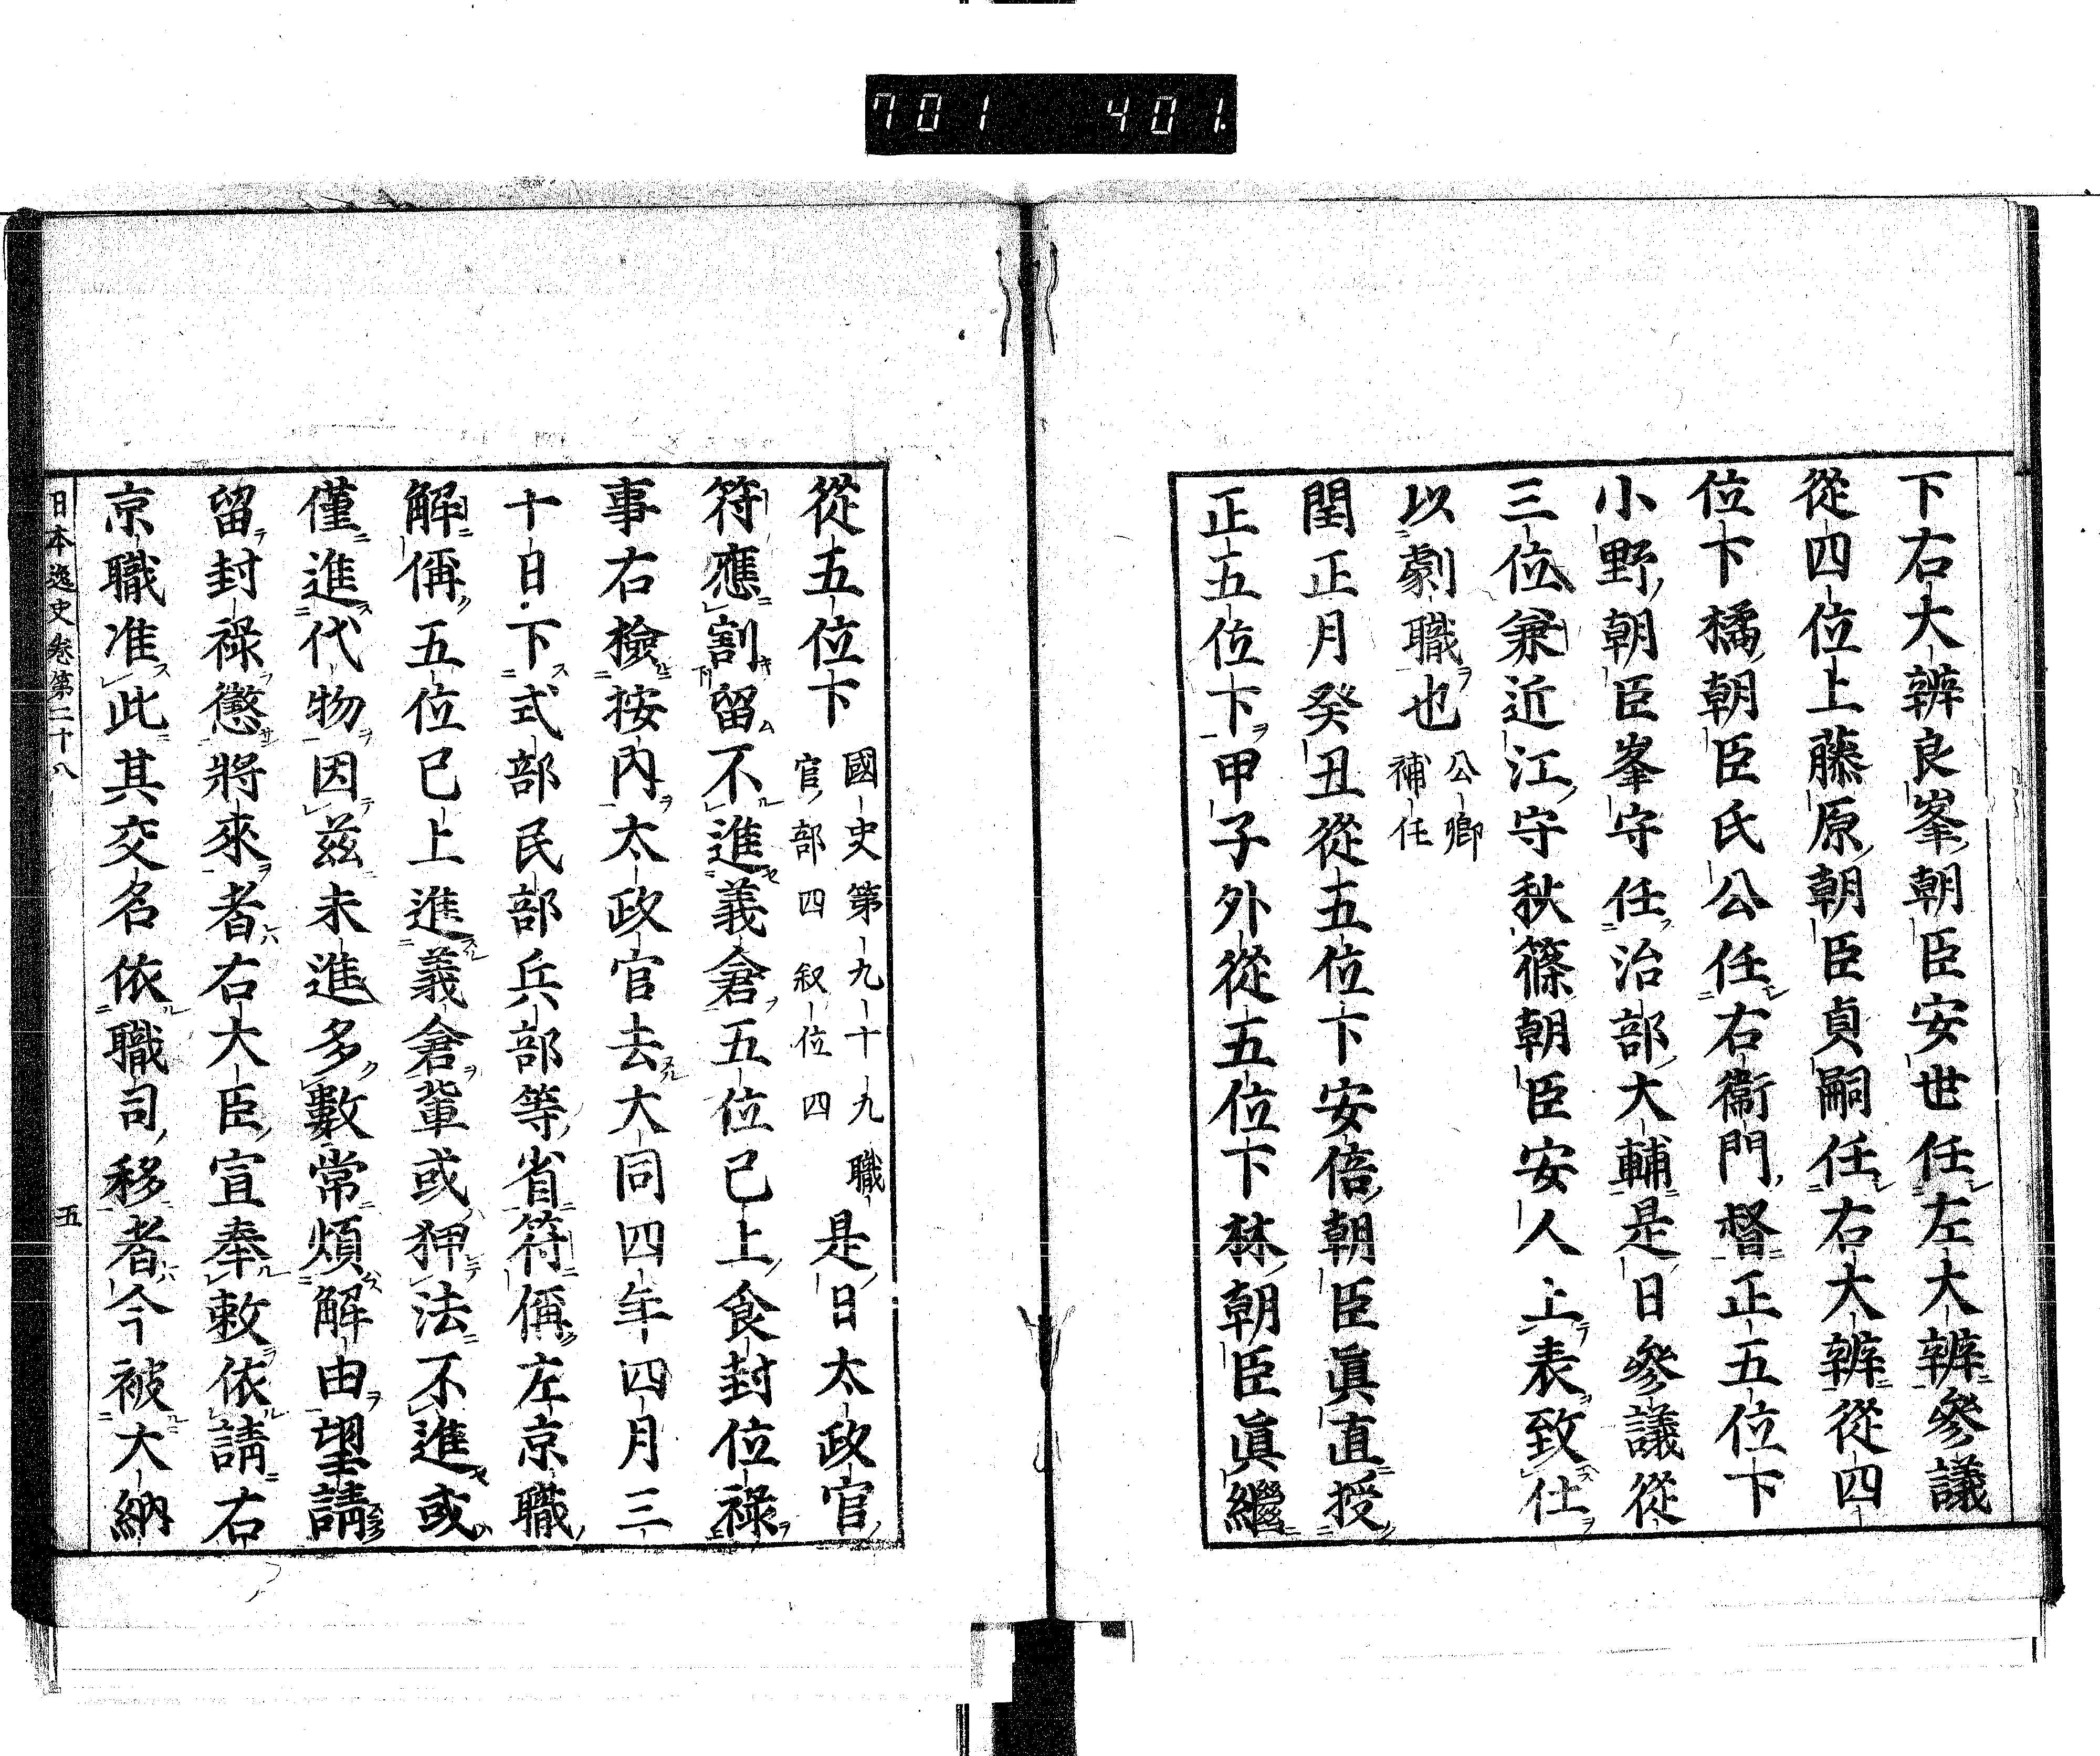 701 401
下右大辨良峯朝臣安世任左大辨參議
從四位上藤原朝臣貞嗣任右大辨從四
位下橘朝臣氏公任右衞門督正五位下
小野朝臣峯守任治部大輔是日參議從
三位兼近江守秋篠朝臣安人上表致仕
以劇職也 公卿
補任
閏正月癸丑從五位下安倍朝臣眞直授
正五位下甲子外從五位下林朝臣眞繼
從五位下 國史第九十九職
官部四叙位四 是日太政官
符應割留不進義倉五位已上食封位祿
事右檢按內太政官去大同四年四月三
十日下式部民部兵部等省符偁左京職
解偁五位已上進義倉輩或狎法不進或
僅進代物因茲未進多數常煩解由望請
留封祿懲將來者右大臣宣奉敕依請右
京職准此其交名依職司移者今被大納
日本逸史卷第二十八 五